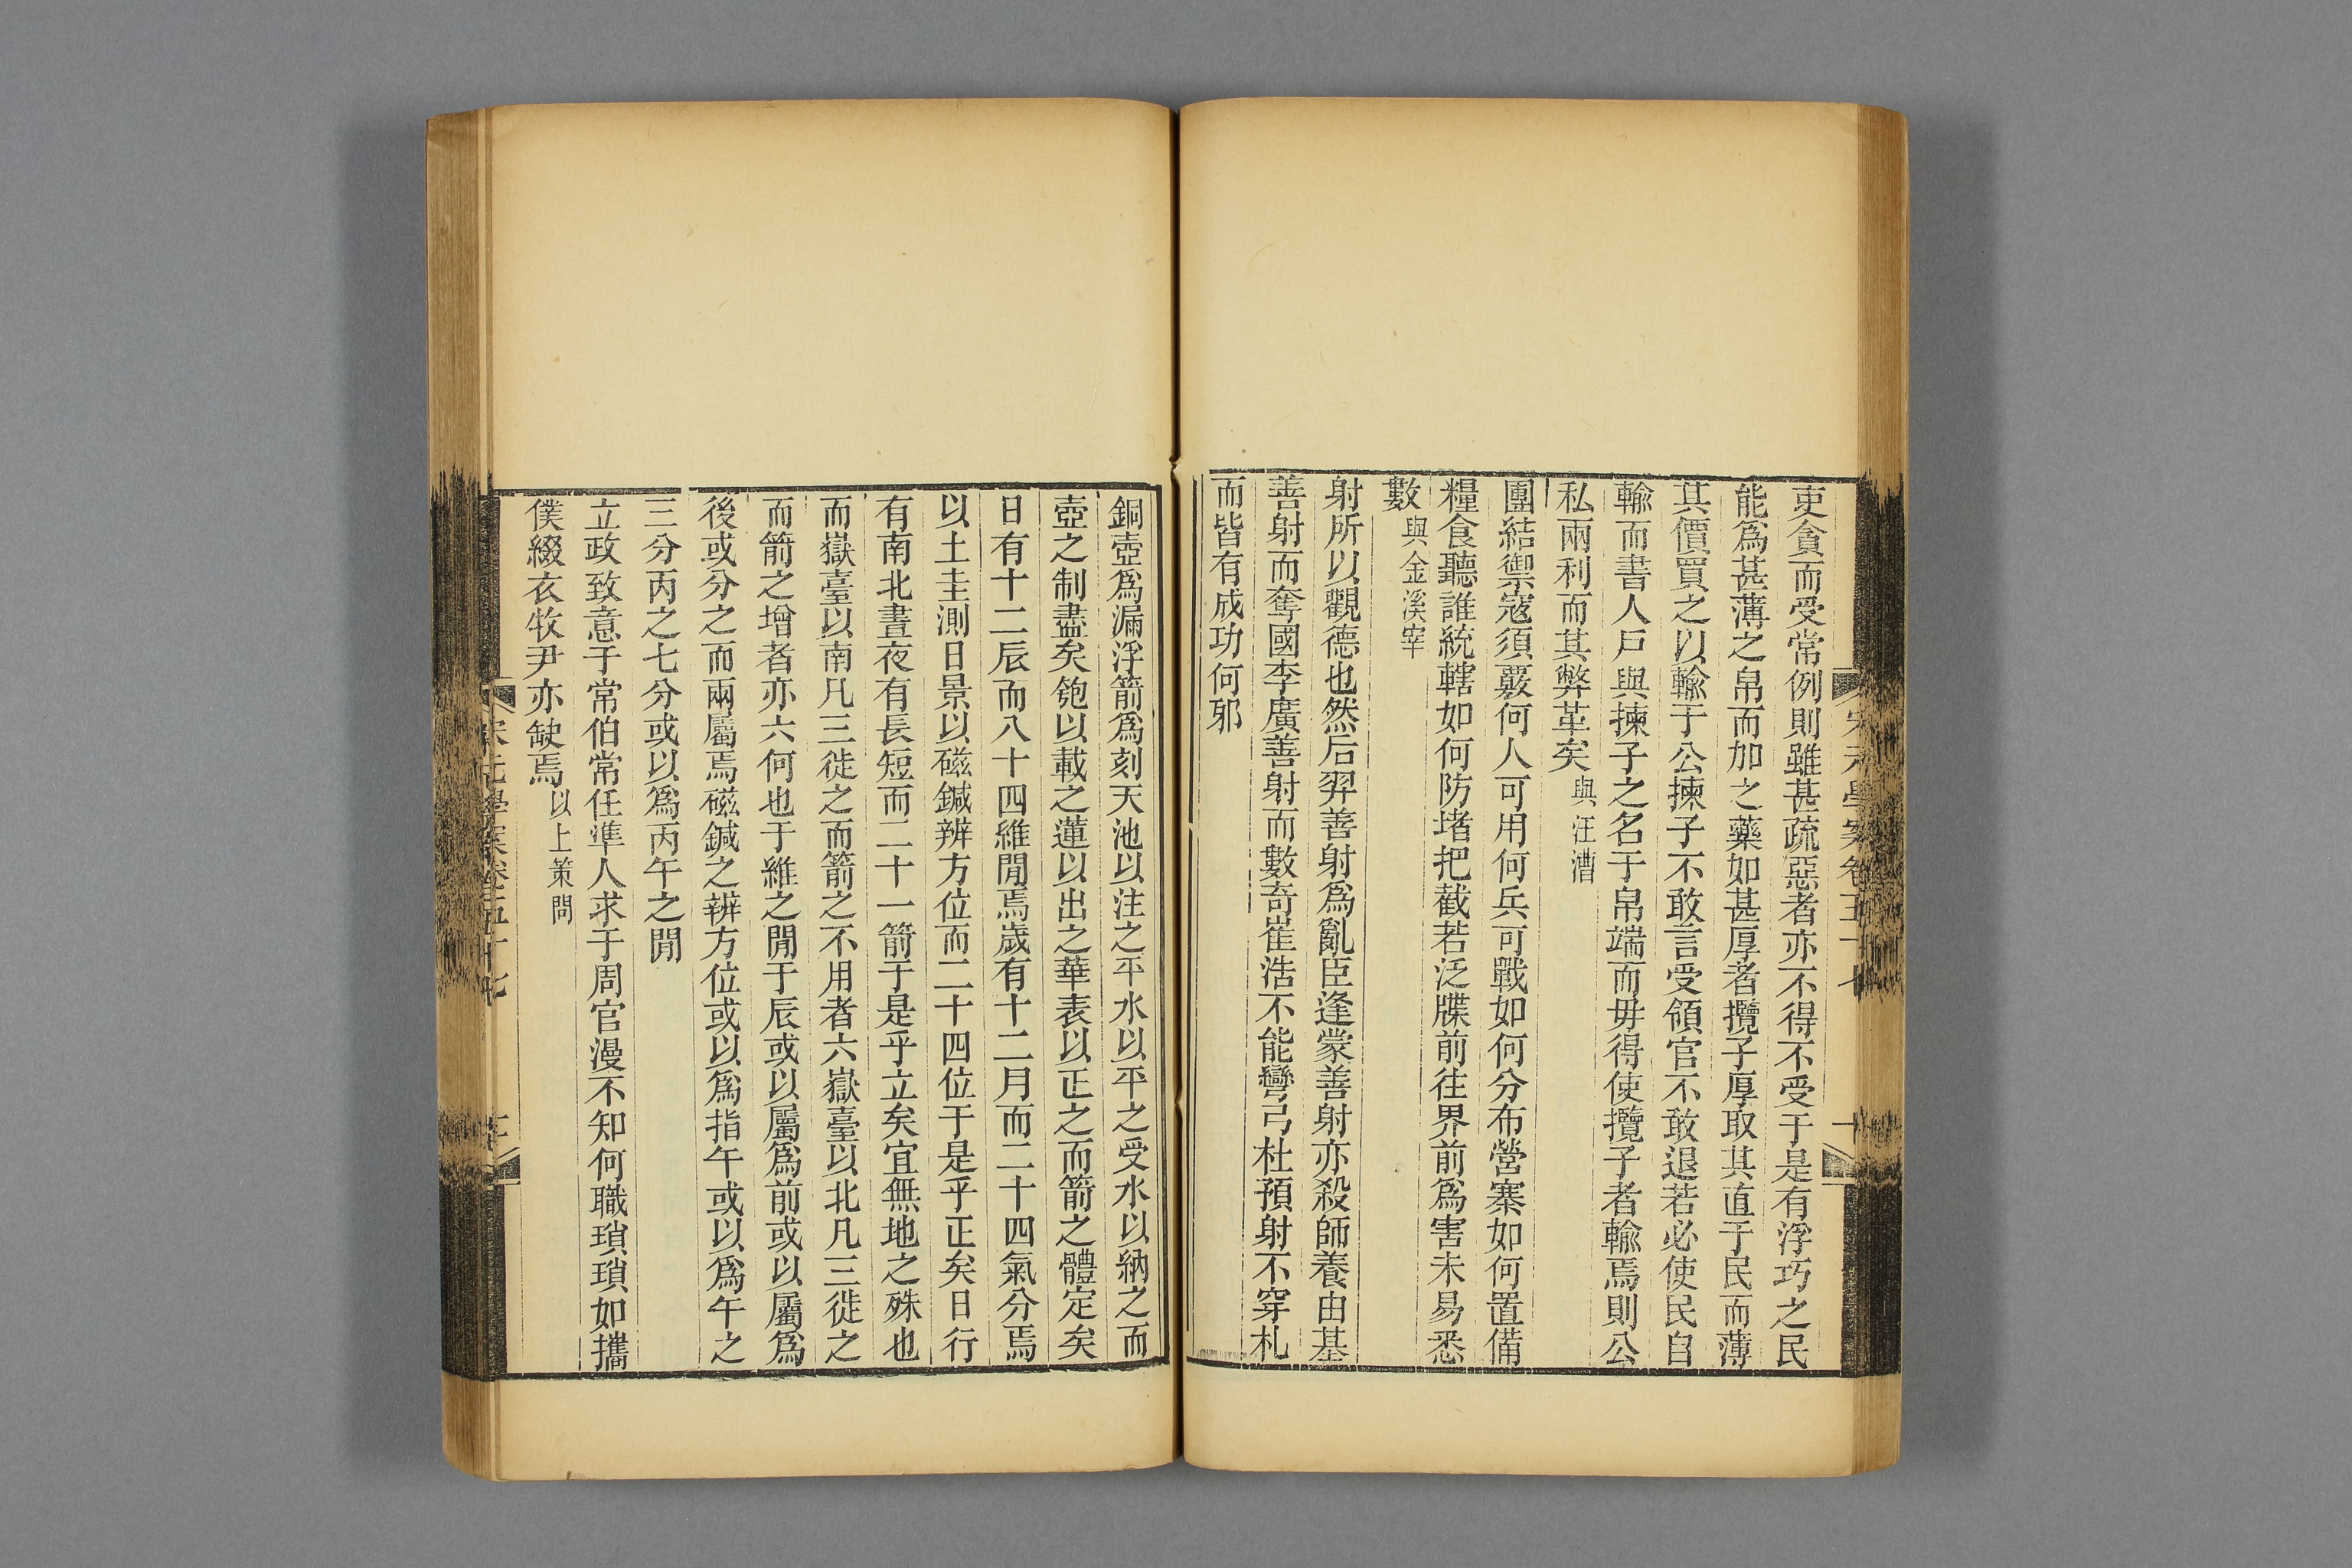 吏貪而受常例則雖甚疏惡者亦不得不受于是有浮巧之民
能爲甚薄之帛而加之藥如甚厚者攬子厚取其直于民而薄
其價買之以輸于公揀子不敢言受領官不敢退若必使民自
輸而書人戶與揀子之名于帛端而毋得使攬子者輸焉則公
私兩利而其弊革矣與汪漕
團結禦寇須覈何人可用何兵可戰如何分布營寨如何置備
糧食聽誰統轄如何防堵把截若泛牒前往界前爲害未易悉
數與金溪宰
射所以觀德也然后羿善射爲亂臣逢蒙善射亦殺師養由基
善射而奪國李廣善射而數奇崔浩不能彎弓杜預射不穿札
而皆有成功何邪
宋元學案卷五十七
銅壺爲漏浮箭爲刻天池以注之平水以平之受水以納之而
壺之制盡矣匏以載之蓮以出之華表以正之而箭之體定矣
日有十二辰而八十四維閒焉歲有十二月而二十四氣分焉
以土圭測日景以磁鍼辨方位而二十四位于是乎正矣日行
有南北晝夜有長短而二十一箭于是乎立矣宜無地之殊也
而嶽臺以南凡三徙之而箭之不用者六嶽臺以北凡三徙之
而箭之增者亦六何也于維之閒于辰或以屬爲前或以屬爲
後或分之而兩屬焉磁鍼之辨方位或以爲指午或以爲午之
三分丙之七分或以爲丙午之閒
立政致意于常伯常任準人求于周官漫不知何職瑣瑣如攜
僕綴衣牧尹亦缺焉以上策問
宋元學案卷五十七